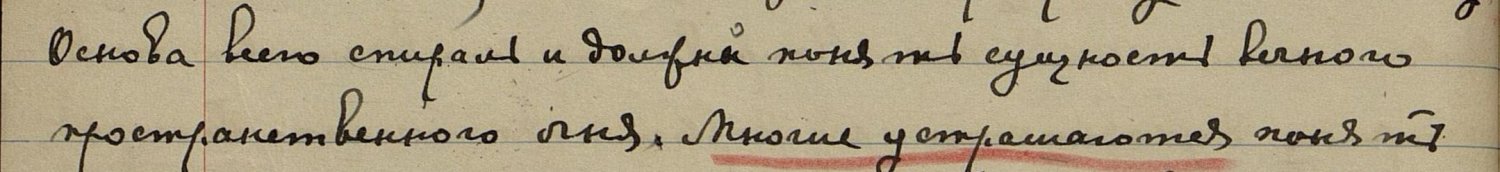 Основа всего спираль и должна понять сущность вечного
пространственного огня. Многие устрашаются понять